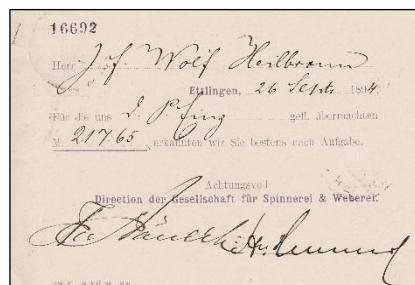 16692
Herr Jos. Wolf Heilbronn
Ettlingen, 26 Sept. 1894.
Für die uns d. P. Einz gefl. übermachten
M. 217.65, erkannten wir Sie bestens nach Aufgabe.
Achtungsvoll
Direction der Gesellschaft für Spinnerei & Weberei.